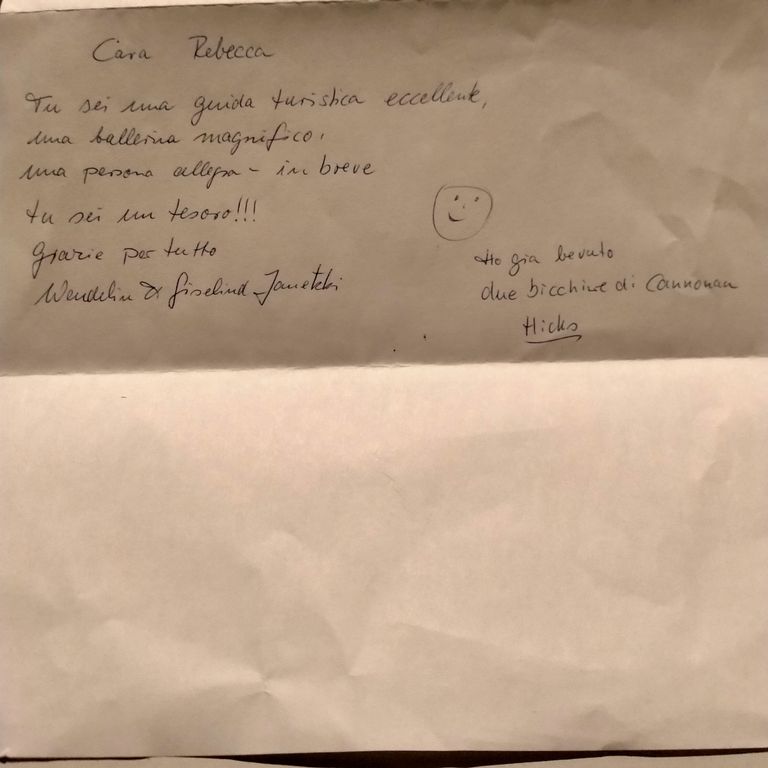 Cara Rebecca
Tu sei una guida turistica eccellente,
una ballerina magnifico,
una persona allegra - in breve
tu sei un tesoro!!!
Grazie per tutto
Wendelin & Giselind Janetzki
Ho gia bevuto
due bicchire di Cannonau
Hicks